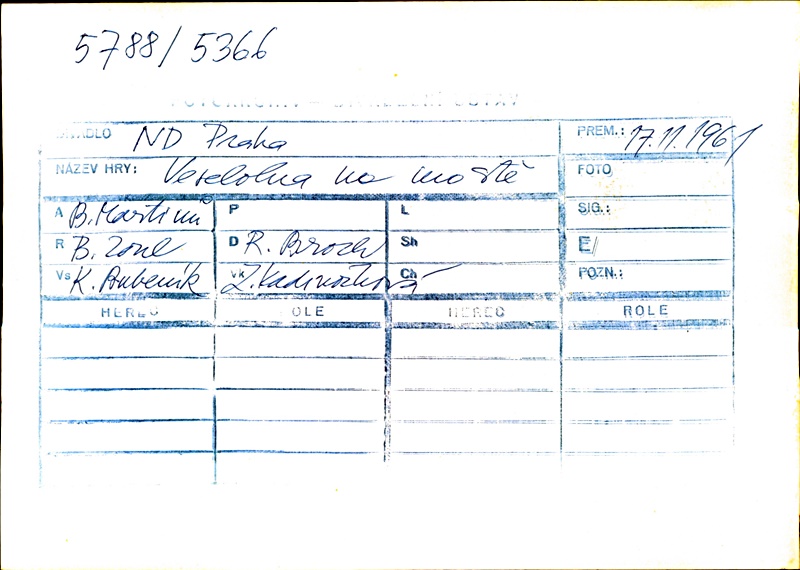 5788/5366
FOTOARCHIV – DIVADELNÍ ÚSTAV
DIVADLO ND Praha PREM.: 17.11.1961
NÁZEV HRY: Veselohra na mostě FOTO
A B. Martinů P L SIG.:
R B. Zoul D R. Broch Sh E/
Vs K. Bubeník Vk Z. Kadrnožková Ch POZN.:
HEREC ROLE HEREC ROLE